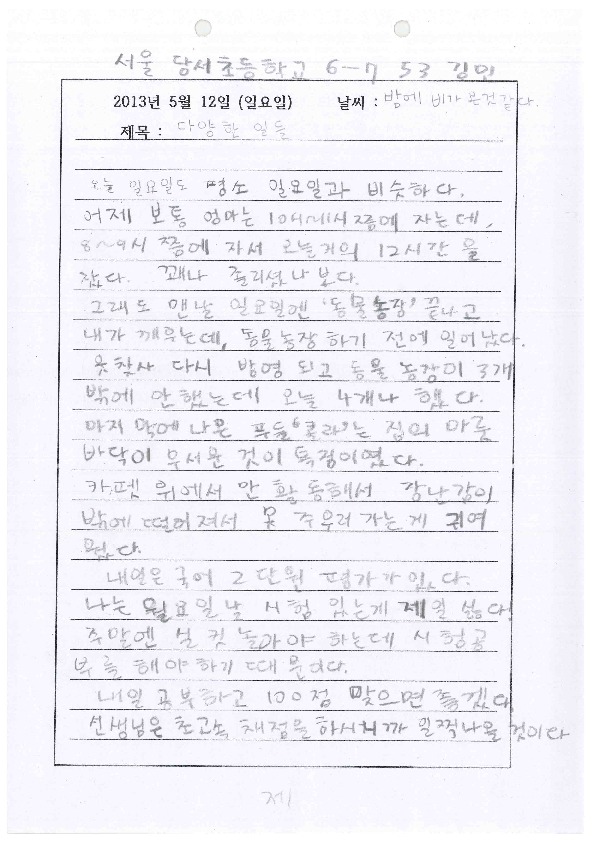 서울 당서초등학교 6-7 53 김민
2013년 5월 12일 (일요일) 날씨 : 밤에 비가 온것같다.
제목 : 다양한 일들
오늘 일요일도 평소 일요일과 비슷하다.
어제 보통 엄마는 10시~11시쯤에 자는데,
8~9시 쯤에 자서 오늘거의 12시간 을
잤다. 꽤나 졸리셨나 보다.
그래도 맨날 일요일엔 '동물농장' 끝나고
내가 깨우는데, 동물농장 하기 전에 일어났다.
웃찾사 다시 방영 되고 동물 농장이 3개
밖에 안했는데 오늘 4개나 했다.
마지막에 나온 푸들'콜라'는 집의 마룻
바닥이 무서운 것이 특징이였다.
카펫 위에서 만 활동해서 장난감이
밖에 떨어져서 못 주우러 가는게 귀여
웠다.
내일은 국어 2단원 평가가 있다.
나는 월요일날 시험 있는게 제일 싫다!
주말엔 실컷 놀아야 하는데 시험공
부를 해야하기 때문이다.
내일 공부하고 100점 맞으면 좋겠다.
선생님은 초고속 채점을 하시니까 일찍나올 것이다